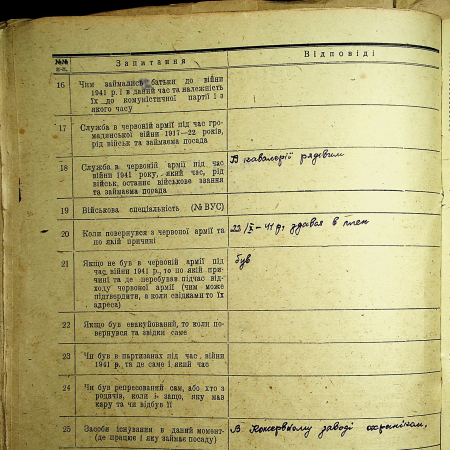 №№ п-п. Запитання Відповіді
16 Чим займались батьки до війни
1941 р. і в даний час та належність
їх до комуністичної партії і з
якого часу
17 Служба в червоній армії під час гро-
мадянської війни 1917—22 років,
рід військ та займаєма посада
18 Служба в червоній армії під час
війни 1941 року, який час, рід
військ, останнє військове звання
та займаєма посада
В кавалерії рядовим
19 Військова спеціальність (№ ВУС)
20 Коли повернувся з червоної армії та
по якій причині
23/X-41 р, здався в плен
21 Якщо не був в червоній армії під
час війни 1941 р., то по якій при-
чині та де перебував підчас від-
ходу червоної армії (чим може
підтвердити, в коли свідками то їх
адреса)
був
22 Якщо був евакуйований, то коли по-
вернувся та звідки саме
23 Чи був в партизанах під час війни
1941 р. та де саме і який час
24 Чи був репресований сам, або хто з
родичів, коли і защо, яку мав
кару та чи відбув її
25 Засоби існування в даний момент-
(де працює і яку займає посаду)
В Консервному заводі охранікам.